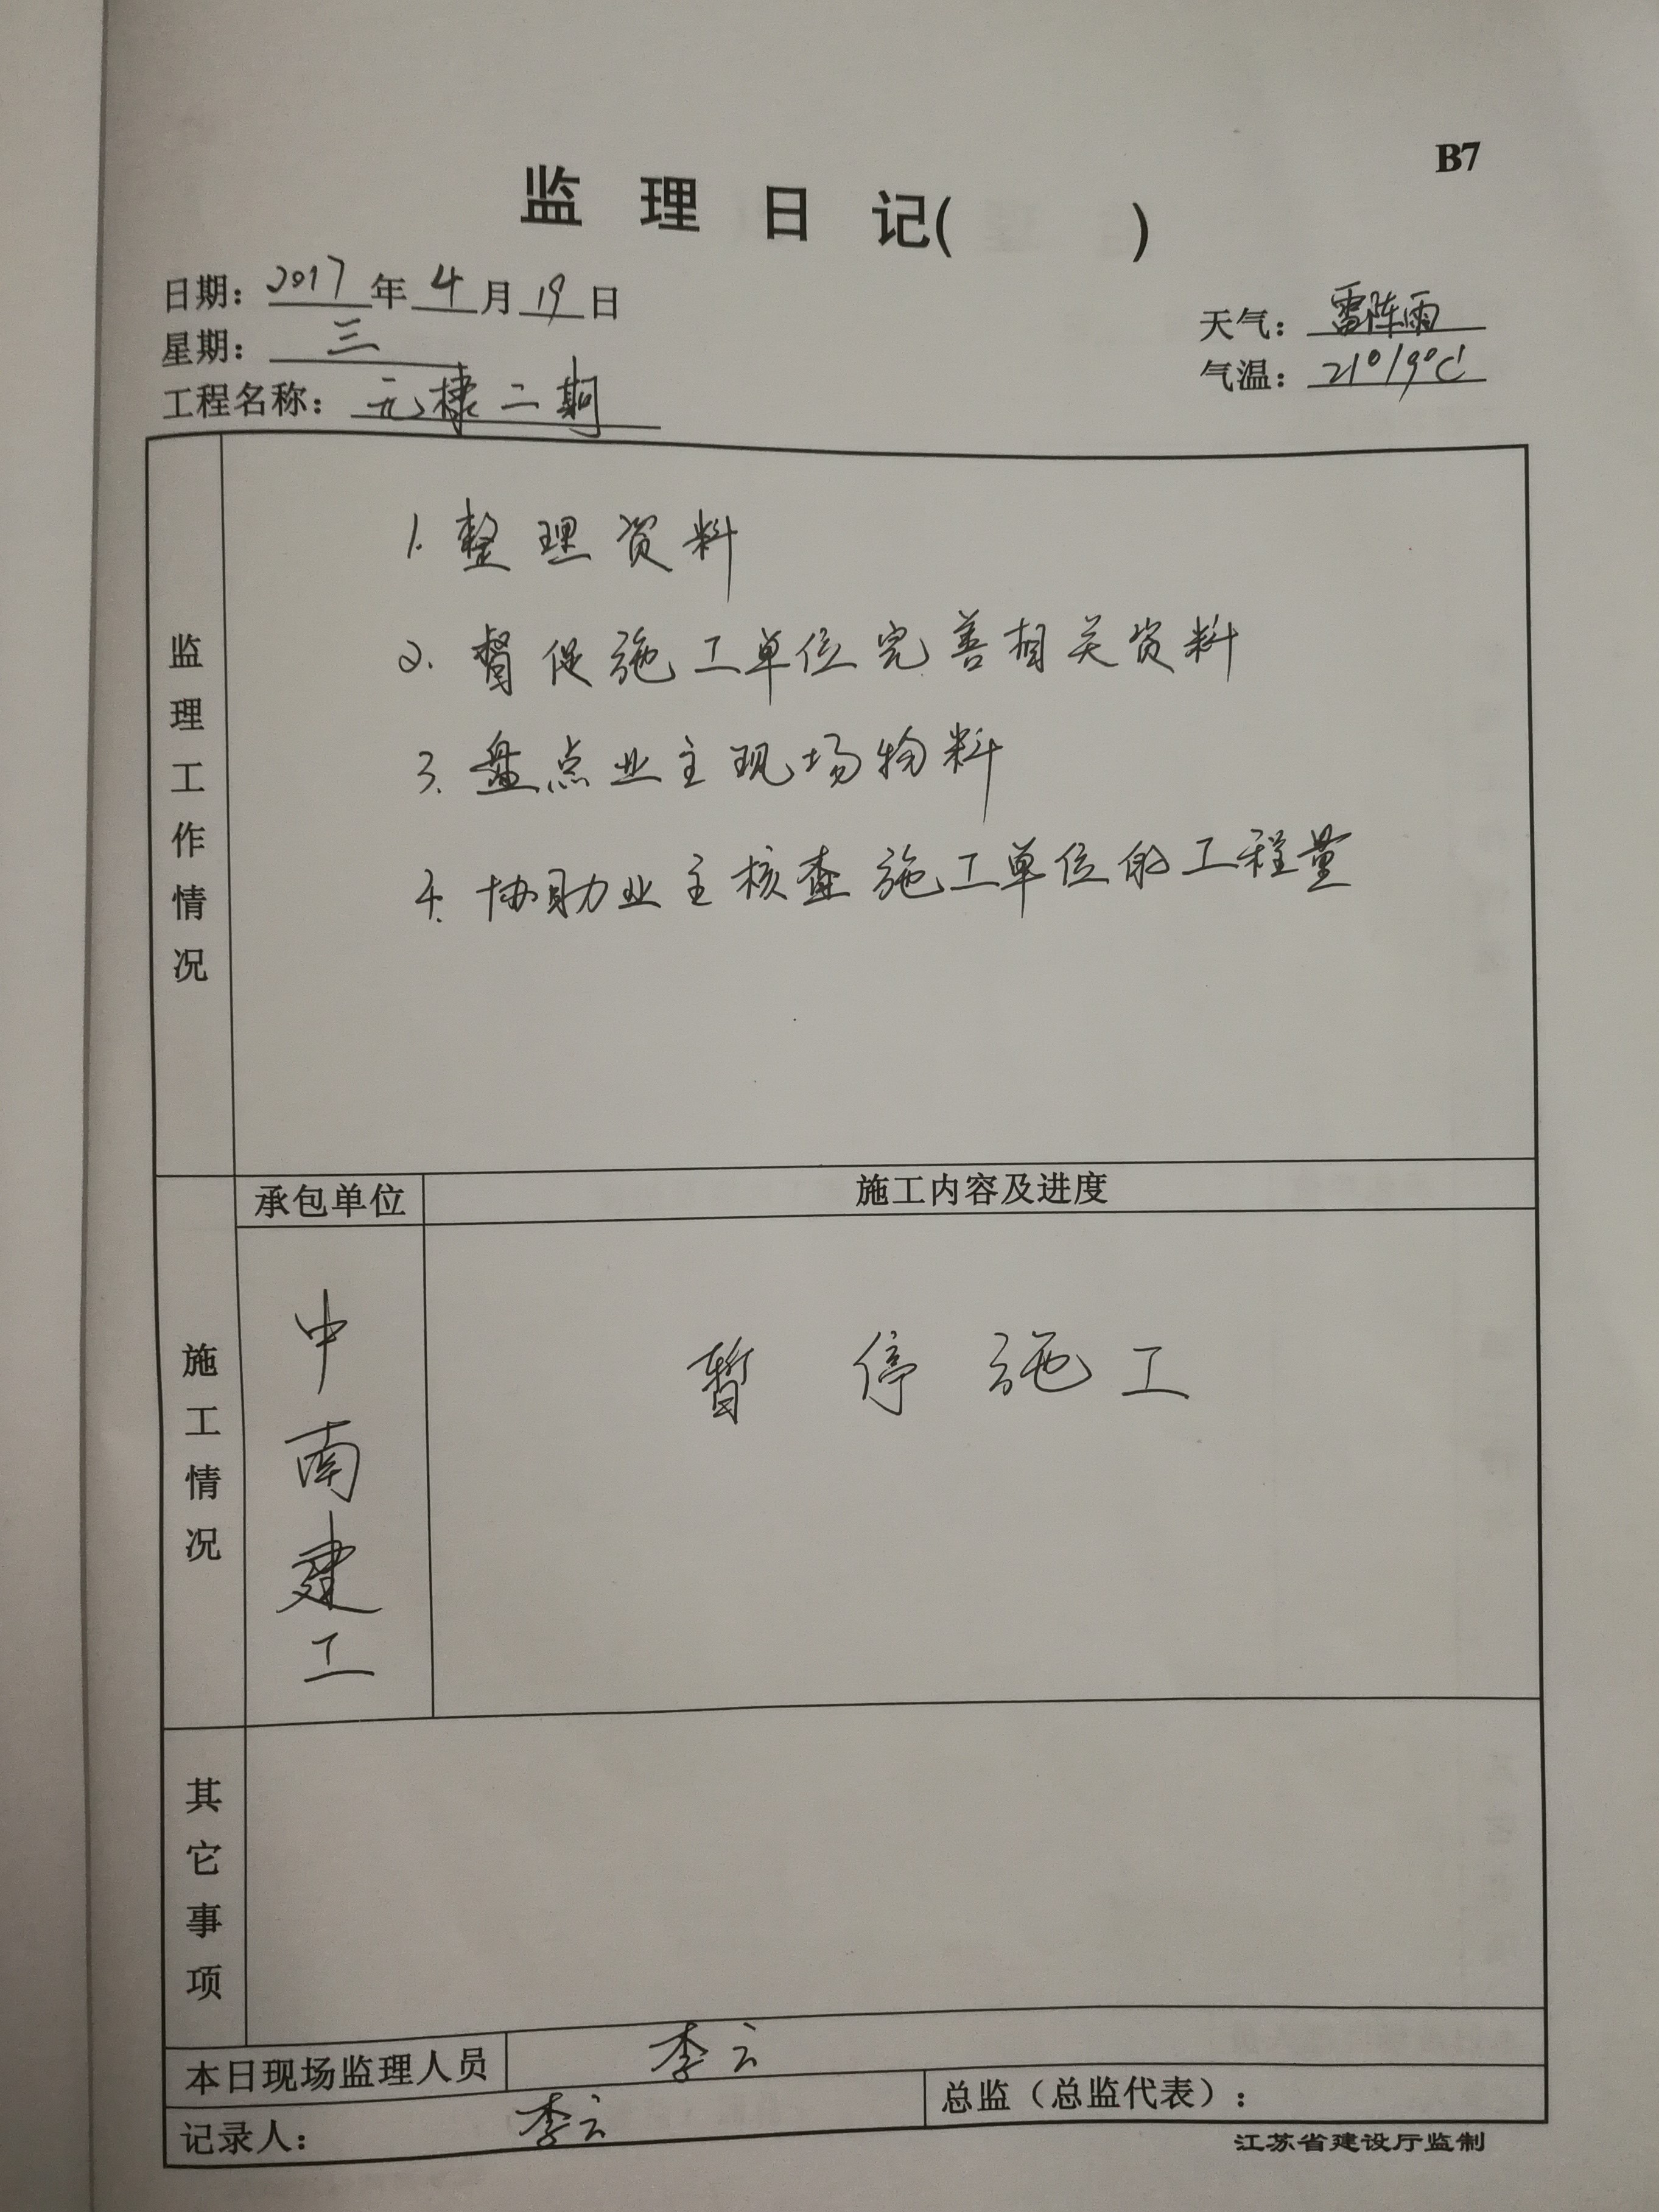 B7
监理日记( )
日期：2017年4月19日
星期：三
天气：雷阵雨
气温：21°/9℃
工程名称：元棣二期
监理工作情况
1. 整理资料
2. 督促施工单位完善相关资料
3. 盘点业主现场物料
4. 协助业主核查施工单位的工程量
施工情况
承包单位
施工内容及进度
中南建工
暂停施工
其它事项
本日现场监理人员
李云
记录人：
李云
总监（总监代表）：
江苏省建设厅监制